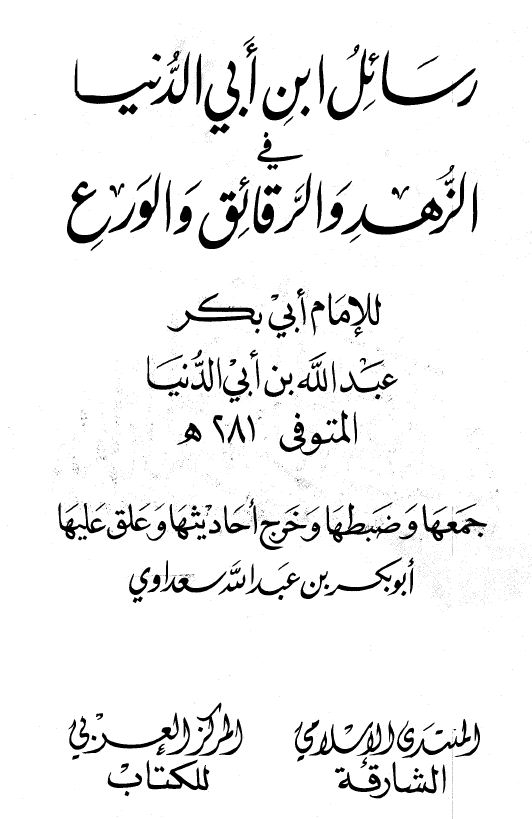 رسَائِلُ ابنِ أَبي الدُّنيا
في
الزُّهدِ وَالرَّقائِق وَالوَرَعِ
للإمَام أبيْ بكر
عبَد اللَّه بن أبيْ الدُّنيَا
المتوفى ٢٨١ ه
جمَعهَا وَضبَطهَا وَخرَج أحَاديثهَا وَعَلق عَليهَا
أبو بكر بن عَبد اللَّه سعداوي
المنتدى الإسلامي
الشارقة
المركز العربي
للكتاب